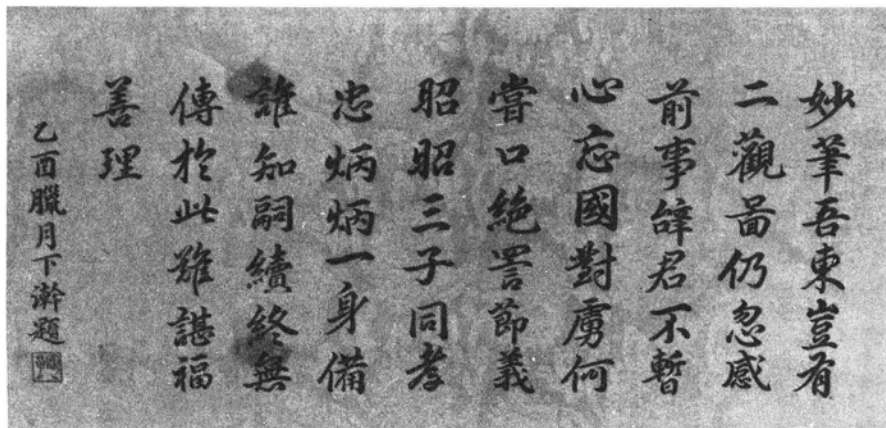 妙筆吾東豈有
二觀啚仍忽感
前事辝君不暫
心忘國對虜何
嘗口絶詈節義
昭昭三子同孝
忠炳炳一身備
誰知嗣續終無
傳於此難諶福
善理
乙酉臘月下澣題